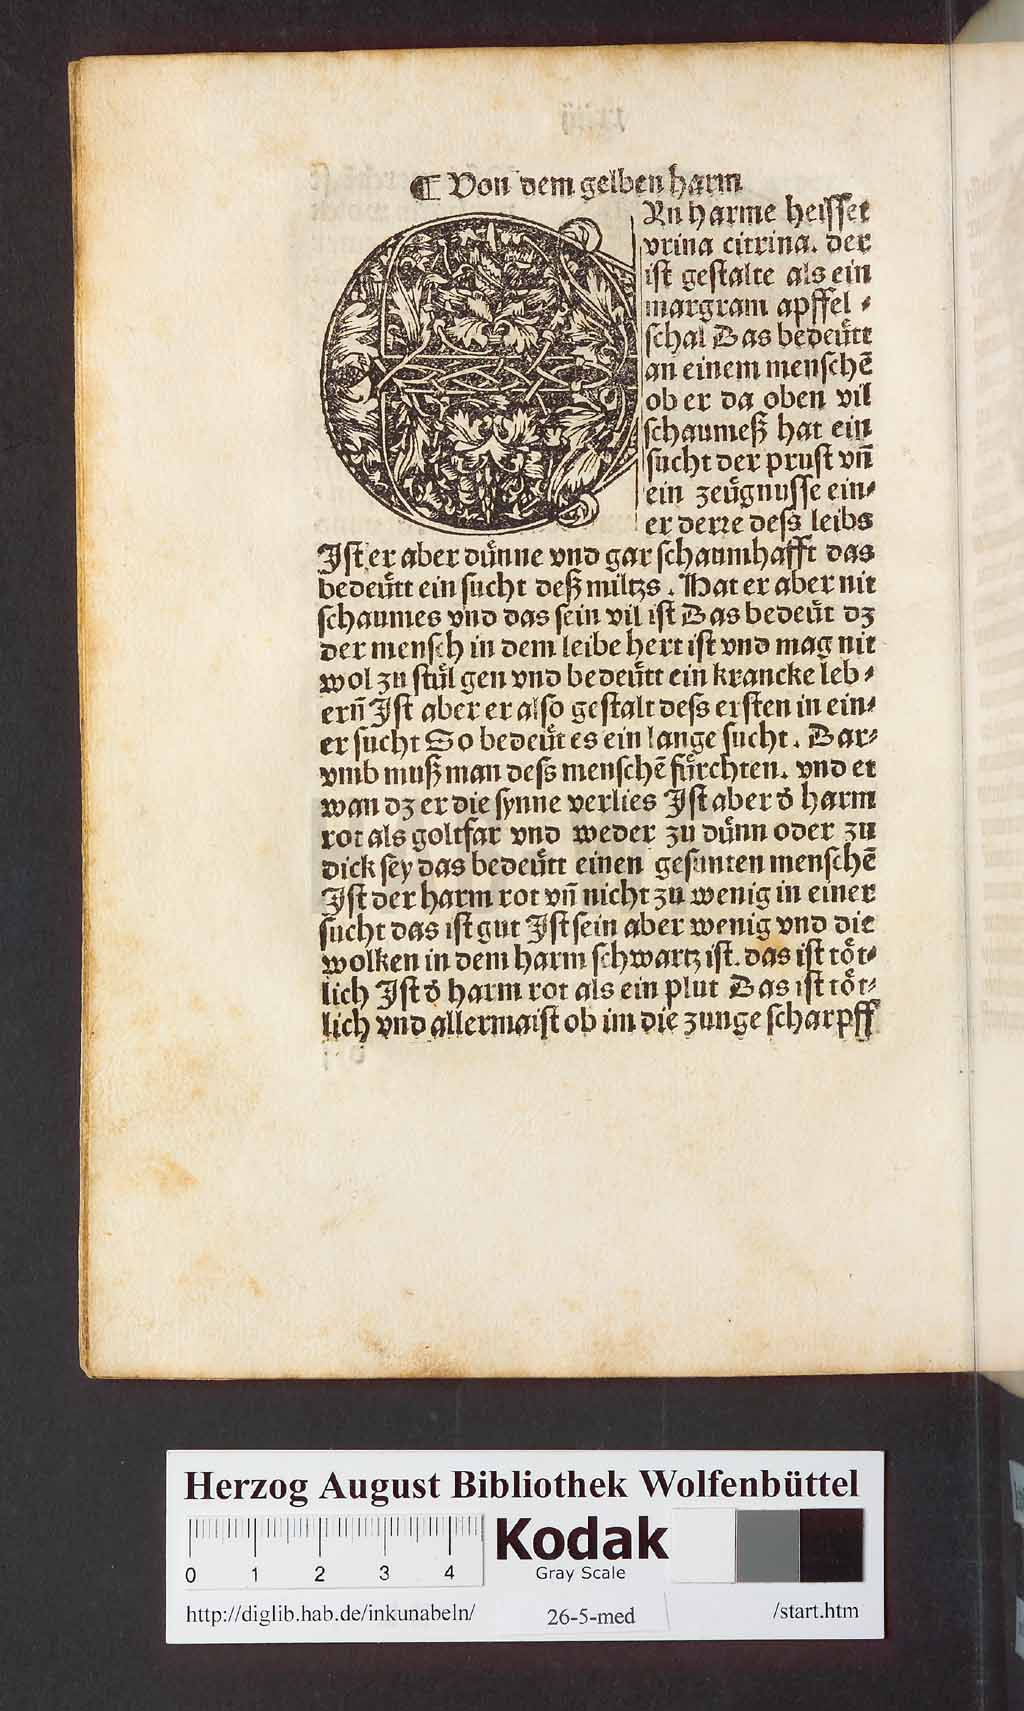 ¶ Von dem gelben harm
EIn harme heisset
vrina citrina. der
ist gestalte als ein
margram apffel⸗
schal Das bedeu̇tt
an einem menschē
ob er da oben vil
schaumeß hat ein
sucht der prust vn̄
ein zeu̇gnusse ein⸗
er derre dess leibs
Ist er aber du̇nne vnd gar schaumhafft das
bedeu̇tt ein sucht deß miltzs. Hat er aber nit
schaumes vnd das sein vil ist Das bedeu̇t dz
der mensch in dem leibe hert ist vnd mag nit
wol zu stu̇l gen vnd bedeu̇tt ein krancke leb⸗
ern̄ Ist aber er also gestalt dess ersten in ein⸗
er sucht So bedeu̇t es ein lange sucht. Dar⸗
vmb muß man dess menschē fu̇rchten. vnd et
wan dz er die synne verlies Ist aber d̕ harm
rot als goltfar vnd weder zu du̇nn oder zu
dick sey das bedeu̇tt einen gesunten menschē
Ist der harm rot vn̄ nicht zu wenig in einer
sucht das ist gut Ist sein aber wenig vnd die
wolken in dem harm schwartz ist. das ist tȯt⸗
lich Ist d̕ harm rot als ein plut Das ist tȯt⸗
lich vnd allermaist ob im die zunge scharpff
Herzog August Bibliothek Wolfenbüttel
0 1 2 3 4
Kodak
Gray Scale
http://diglib.hab.de/inkunabeln/ 26-5-med /start.htm